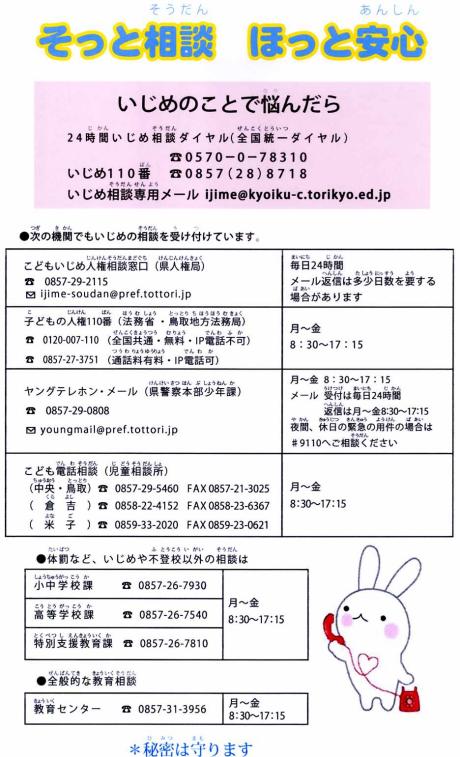 そっと相談　ほっと安心
いじめのことで悩んだら
24時間いじめ相談ダイヤル(全国統一ダイヤル)
☎0570-0-78310
いじめ110番　☎0857(28)8718
いじめ相談専用メール ijime@kyoiku-c.torikyo.ed.jp
●次の機関でもいじめの相談を受け付けています。
こどもいじめ人権相談窓口（県人権局）
☎ 0857-29-2115
✉ ijime-soudan@pref.tottori.jp
毎日24時間
メール返信は多少日数を要する
場合があります
子どもの人権110番（法務省・鳥取地方法務局）
☎ 0120-007-110（全国共通・無料・IP電話不可）
☎ 0857-27-3751（通話料有料・IP電話可）
月～金
8：30～17：15
ヤングテレホン・メール（県警察本部少年課）
☎ 0857-29-0808
✉ youngmail@pref.tottori.jp
月～金 8：30～17：15
メール 受付は毎日24時間
返信は月～金8:30～17:15
夜間、休日の緊急の用件の場合は
＃9110へご相談ください
こども電話相談（児童相談所）
（中央・鳥取）☎ 0857-29-5460 FAX0857-21-3025
（倉吉）☎ 0858-22-4152 FAX0858-23-6367
（米子）☎ 0859-33-2020 FAX0859-23-0621
月～金
8:30～17:15
●体罰など、いじめや不登校以外の相談は
小中学校課　☎ 0857-26-7930
高等学校課　☎ 0857-26-7540
特別支援教育課　☎ 0857-26-7810
月～金
8:30～17:15
●全般的な教育相談
教育センター　☎ 0857-31-3956
月～金
8:30～17:15
＊秘密は守ります